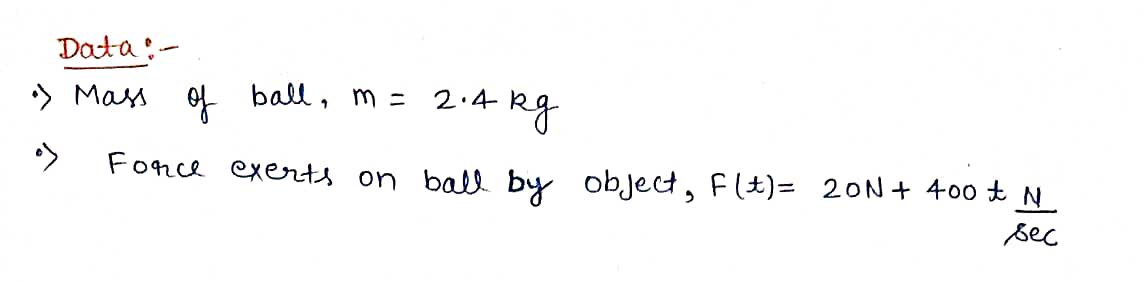 Data :-
•> Mass of ball, m = 2.4 kg
•> Force exerts on ball by object, F(t)= 20N + 400 t N/sec